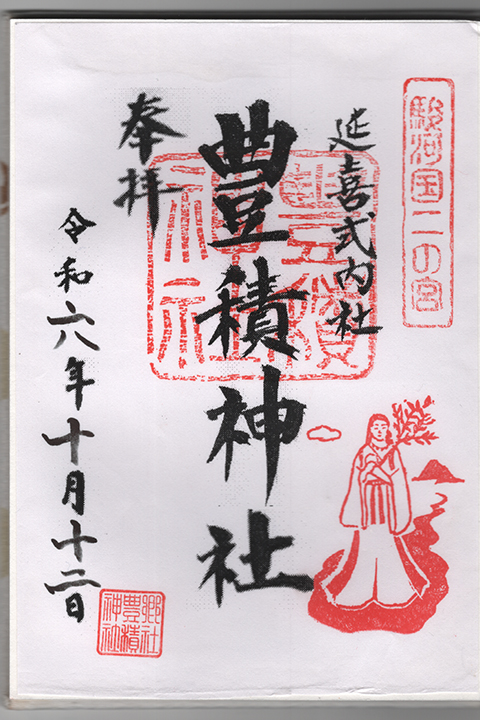 駿河国二の宮
延喜式内社
豊積神社
奉拝
令和六年十月十二日
郷社
豊積
神社